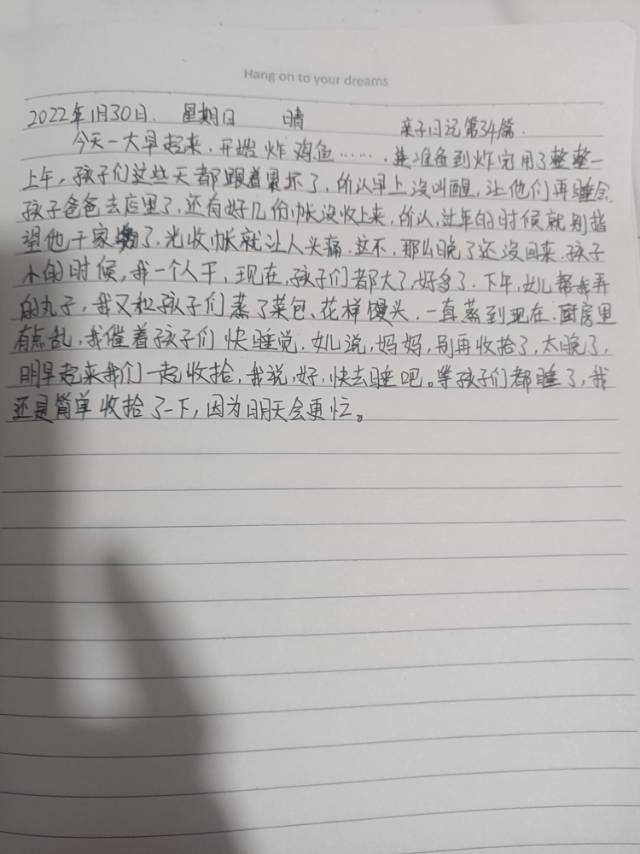 Hang on to your dreams
2022年1月30日. 星期日 晴 亲子日记第34篇.
今天一大早起来,开始炸鸡鱼……,从准备到炸完用了整整一
上午,孩子们这些天都跟着累坏了,所以早上没叫醒,让他们再睡会.
孩子爸爸去店里了,还有好几份帐没收上来,所以,过年的时候就别指
望他干家务了,光收帐就让人头痛.这不,那么晚了还没回来.孩子
小的时候,我一个人干,现在,孩子们都大了,好多了.下午,女儿帮我弄
的丸子,我又和孩子们蒸了菜包、花样馒头.一直蒸到现在.厨房里
有点乱,我催着孩子们快睡觉.女儿说,妈妈,别再收拾了,太晚了,
明早起来我们一起收拾,我说,好,快去睡吧。等孩子们都睡了,我
还是简单收拾了一下,因为明天会更忙。